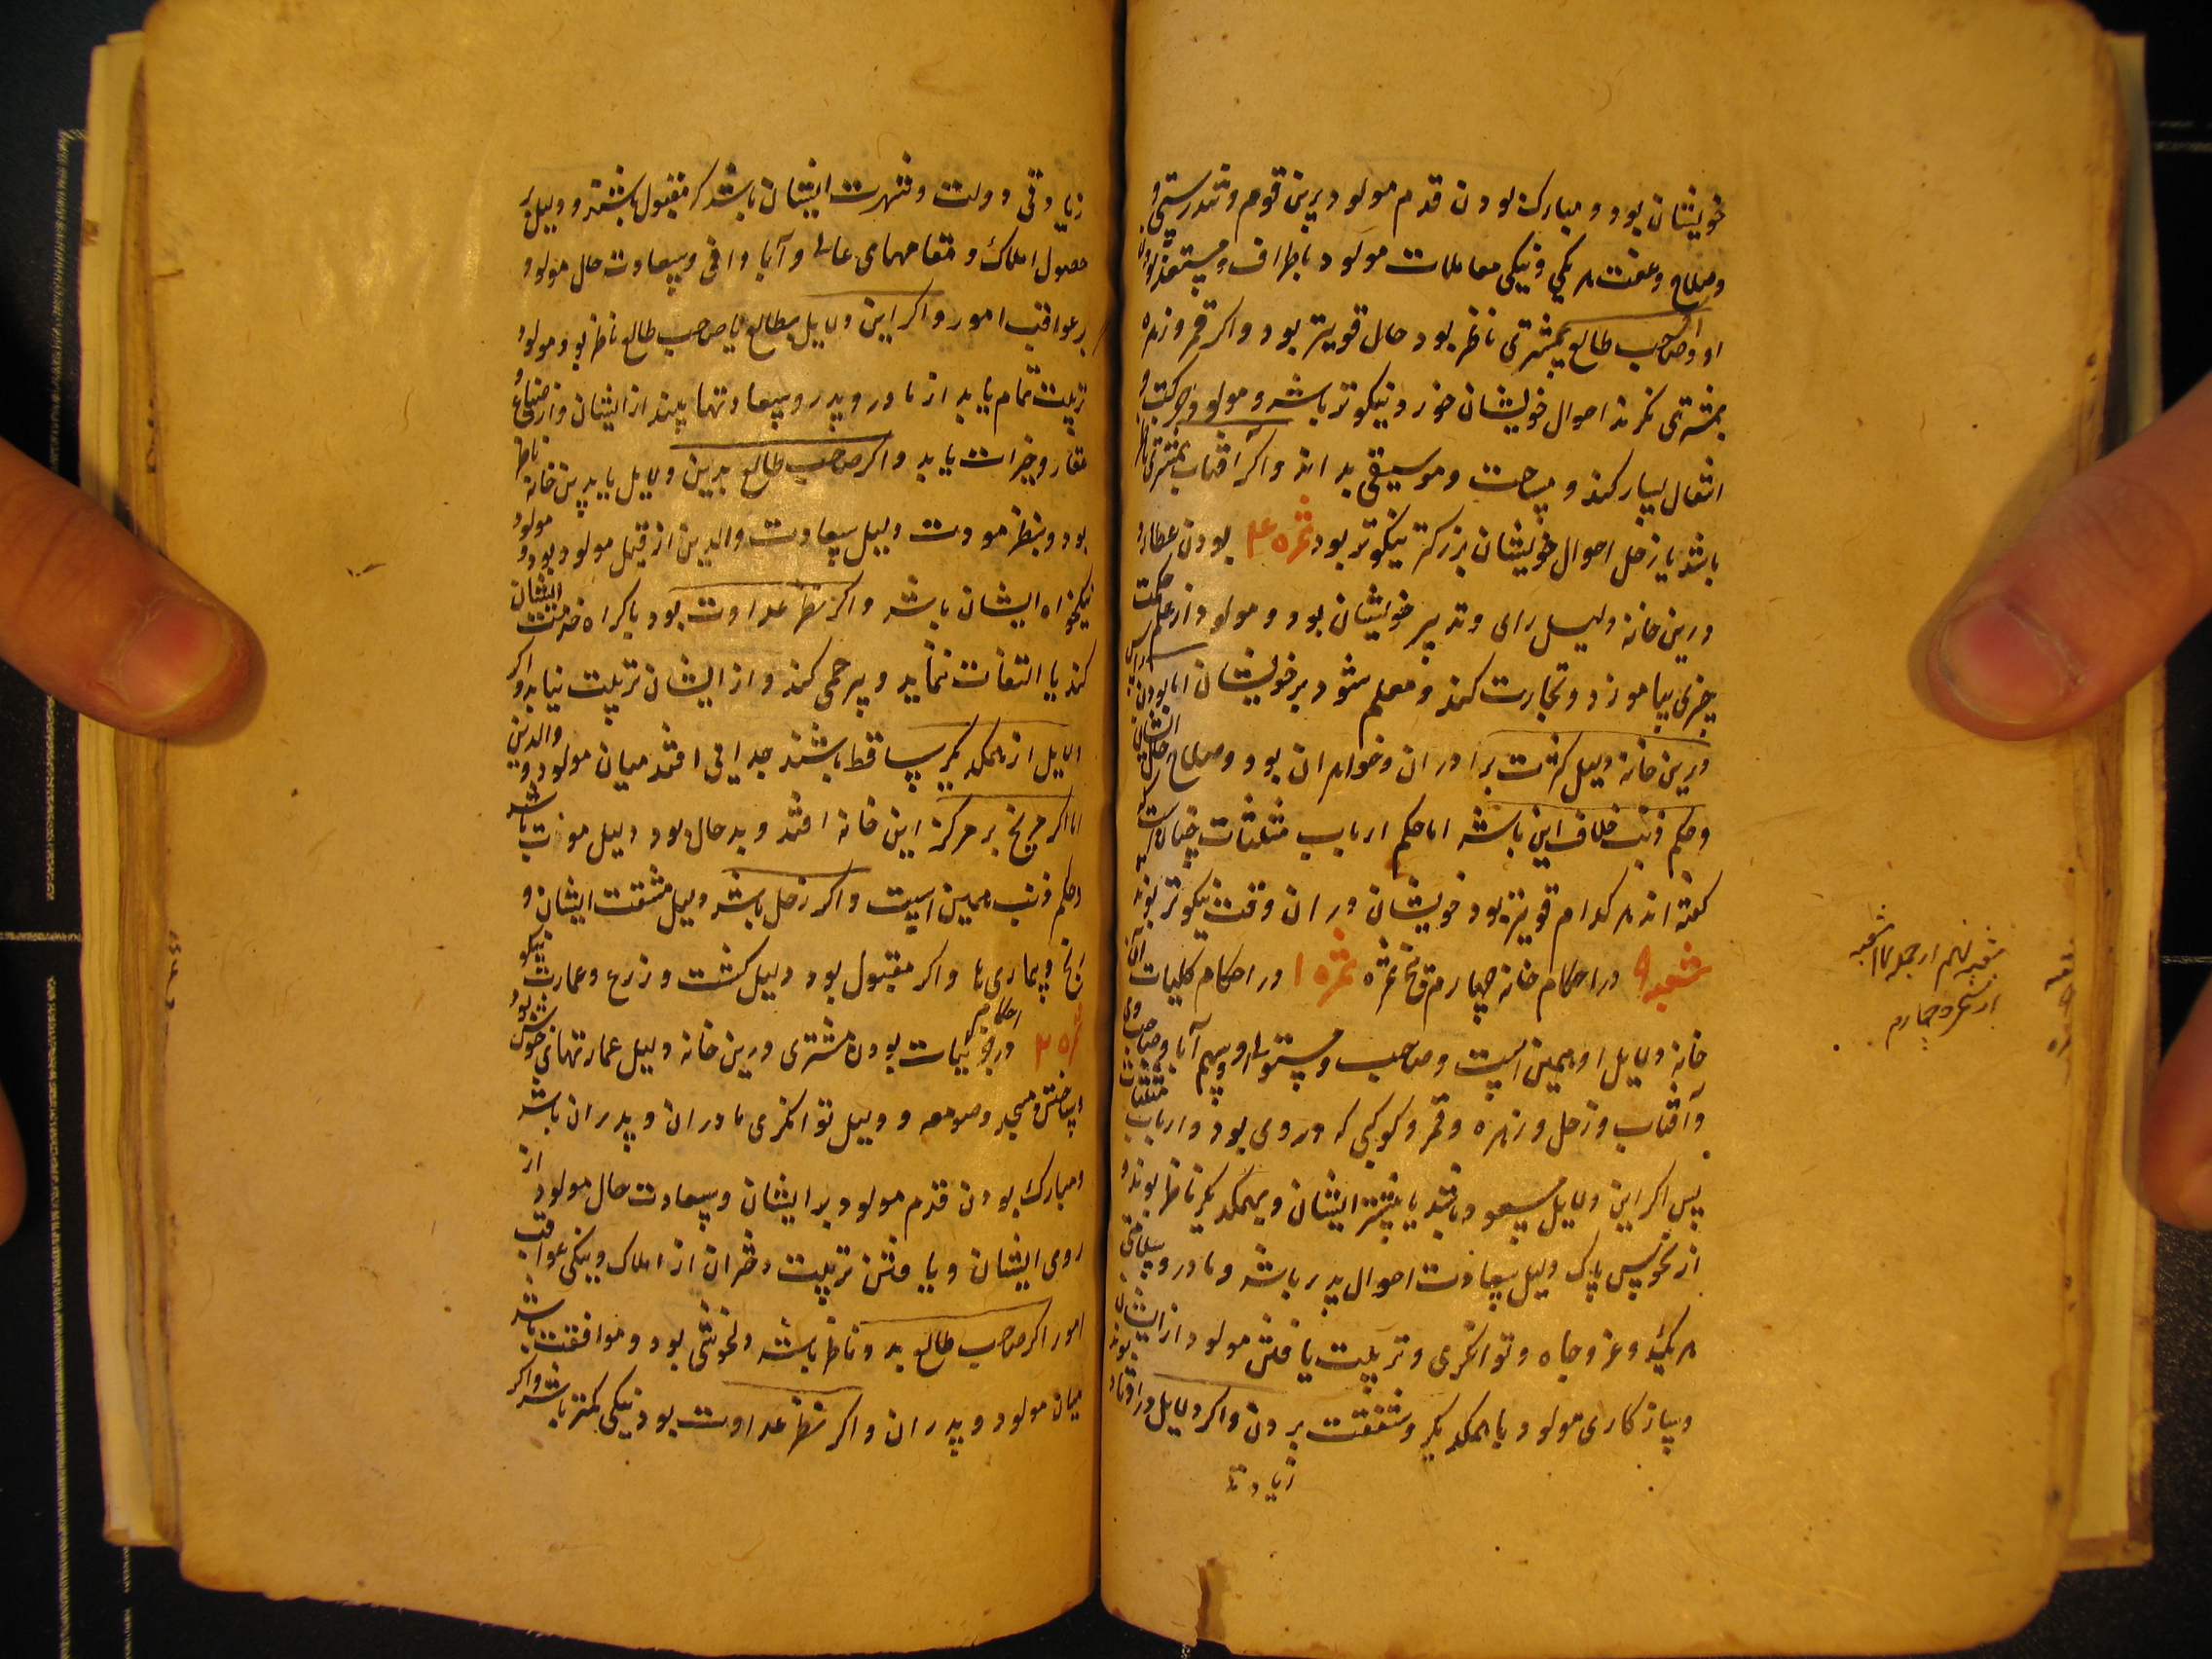 خویشان بود و مبارک بودن قدم مولود برین قوم و تندرستی و
وصلاح و عفت هر یکی و نیکی معاملات مولود باطراف و
او و اگر صاحب طالع بمشتری ناظر بود حال قویتر بود و اگر قمر و زهره
بمشتری نگرند احوال خویشان خورد نیکوتر باشد و مولود حرکت و
انتقال بسیار کند و مساحت و موسیقی بداند و اگر آفتاب بمشتری ناظر
باشد یا زحل احوال خویشان بزرگتر نیکوتر بود ثمره ۴ بودن عطارد
درین خانه دلیل رای و تدبیر خویشان بود و مولود از علم حکمت
چیزی بیاموزد و تجارت کند و معلم شود بر خویشان اما بودن راس
درین خانه دلیل کثرت برادران و خواهران بود و صلاح حال ایشان
و حکم ذنب خلاف این باشد اما حکم ارباب مثلثات چنان است که
گفته اند هر کدام قویتر بود خویشان در ان وقت نیکوتر بوند
شعبه ۹ در احکام خانه چهارم ثمره ۱ در احکام کلیات آن
خانه دلایل او همین است و صاحب و مستولی او و سهم آبا و صاحب وی
و آفتاب و زحل و زهره و قمر و کوکبی که در وی بود و ارباب مثلثات
پس اگر این دلایل مسعود باشند یا بیشتر ایشان و بهمدیگر ناظر بوند و
از نحوس پاک دلیل سعادت احوال پدر باشد و مادر و سلامتی
هر یک و عز و جاه و توانگری و تربیت یافتن مولود از ایشان
و سازکاری مولود با همدیگر و شفقت بردن و اگر دلایل در اوتاد بوند
زیادتی
شعبه نهم از جمله ۱۸ شعبه
از شجره چهارم
زیادتی دولت و شهرت ایشان باشد که مقبول باشند و دلیل بر
حصول املاک و مقامهای عالی و آبادانی و سعادت حال مولود
بر عواقب امور و اگر این دلایل بطالع یا صاحب طالع ناظر بود مولود
تربیت تمام یابد از مادر و پدر و سعادتها بیند از ایشان و از ضیاع و
عقار و خیرات یابد و اگر صاحب طالع بدین دلایل یا بدین خانه ناظر
بود و بنظر مودت دلیل سعادت والدین از قبل مولود بود و مولود
نیکخواه ایشان باشد و اگر نظر عداوت بود باکراه خدمت ایشان
کند یا التفات ننماید و بیرحمی کند و از ایشان تربیت نیابد و اگر
دلایل از همدیگر ساقط باشند جدایی افتد میان مولود و والدین
اما اگر مریخ بر مرکز این خانه افتد و بد حال بود دلیل موت باشد
و حکم ذنب همین است و اگر زحل باشد دلیل مشقت ایشان و
رنج و بیماری ها و اگر مقبول بود دلیل کشت و زرع و عمارت نیکو بود
ثمره ۲ در احکام جزئیات بودن مشتری درین خانه دلیل عمارتهای خوش
و ساختن مسجد و صومعه و دلیل توانگری مادران و پدران باشد
و مبارک بودن قدم مولود بر ایشان و سعادت حال مولود از
روی ایشان و یافتن تربیت دختران از املاک و نیکی عواقب
امور اگر صاحب طالع بدو ناظر باشد دلخوشی بود و موافقت باشد
میان مولود و پدران و اگر نظر عداوت بود نیکی کمتر باشد و اگر